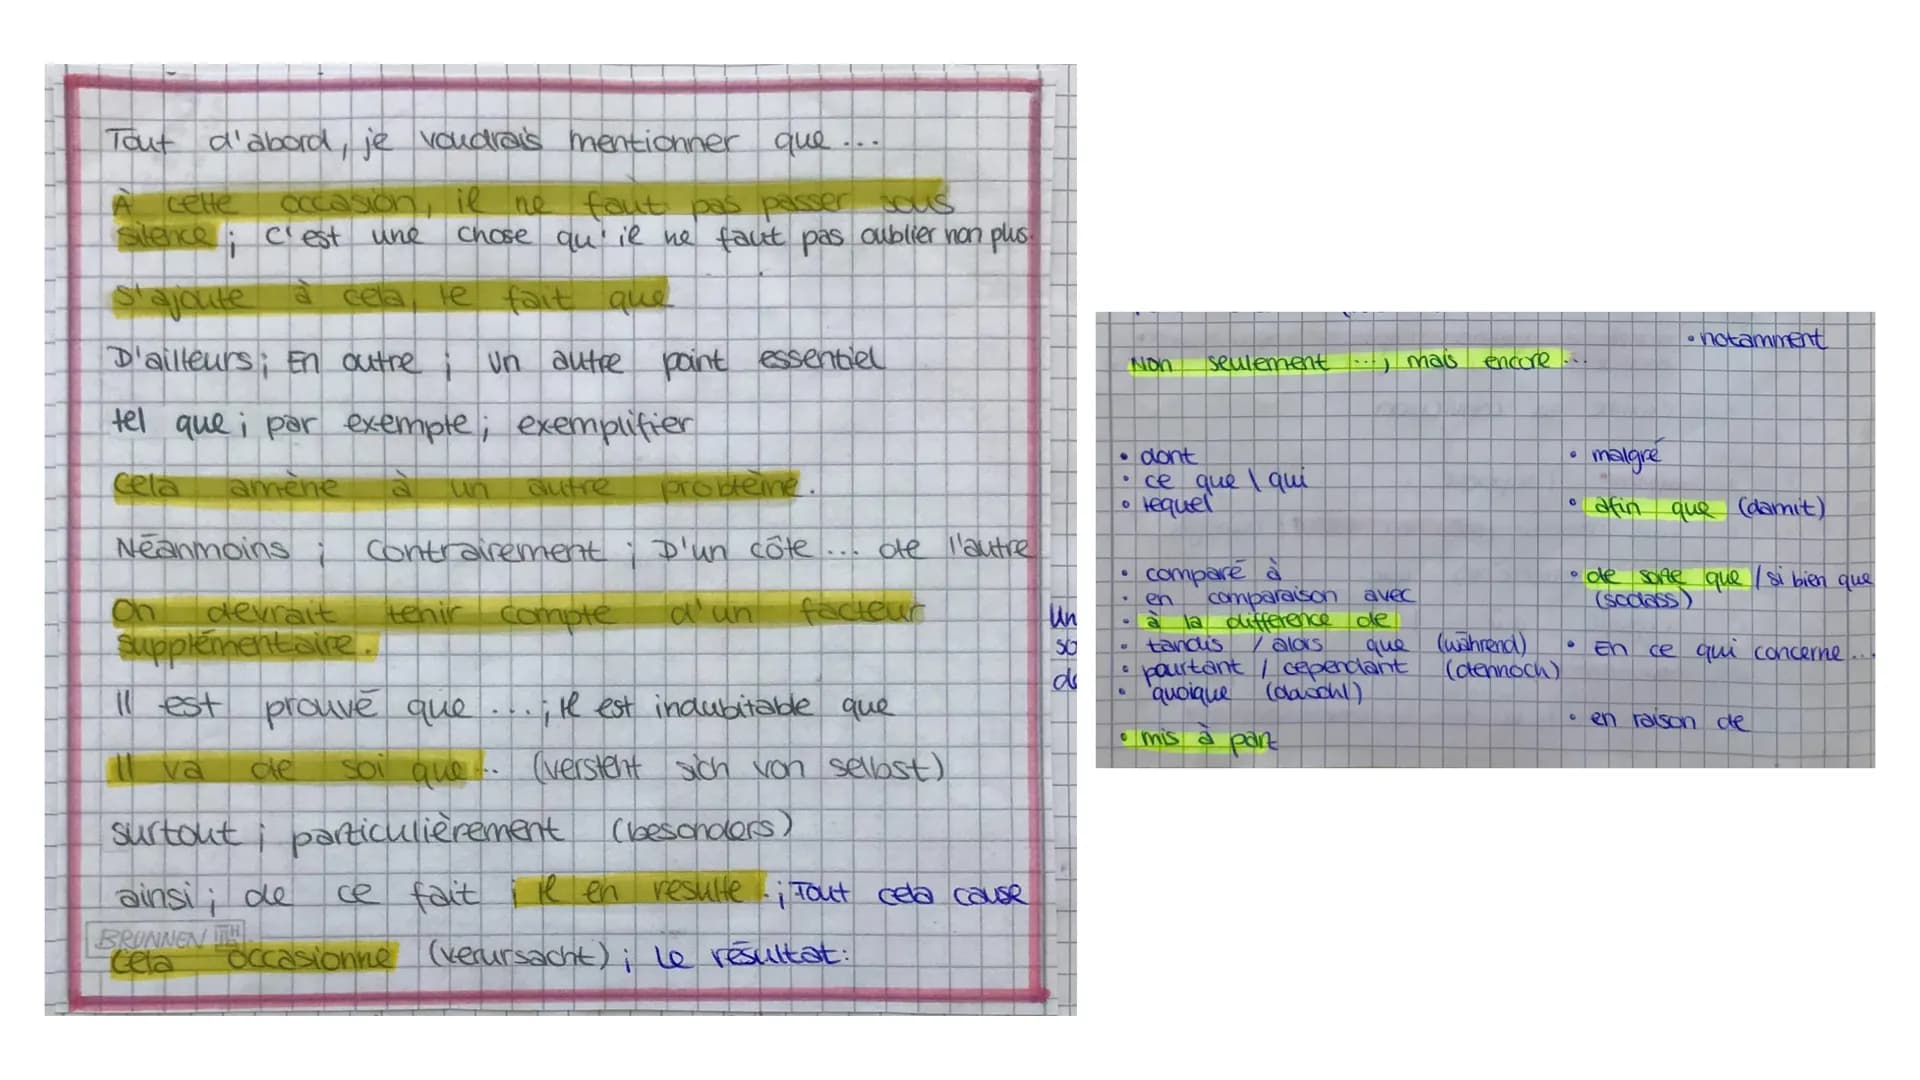 Tout d'abord, je voudrais mentionner que...
À cette occasion, il ne faut pas passer sous
silence; c'est une chose qu'il ne faut pas oublier non plus.
S'ajoute à cela, le fait que
D'ailleurs; En outre; Un autre point essentiel
tel que; par exemple; exemplifier
Cela amène à un autre problème.
Néanmoins; Contrairement; D'un côte... de l'autre
On devrait tenir compte d'un facteur
supplémentaire.
Il est prouvé que...; Il est indubitable que
Il va de soi que... (versteht sich von selbst)
surtout; particulièrement (besonders)
ainsi; de ce fait; il en resulte.; Tout cela cause
BRUNNEN
Cela occasionne (verursacht); Le résultat:
Un
so
de
• notamment
Non seulement ..., mais encore...
• dont
• ce que / qui
• lequel
• comparé à
• en comparaison avec
• à la différence de
• tandis / alors que (während)
• pourtant / cependant (dennoch)
• quoique (obwohl)
• mis à part
• malgré
• afin que (damit)
• de sorte que / si bien que
(sodass)
• En ce qui concerne...
• en raison de